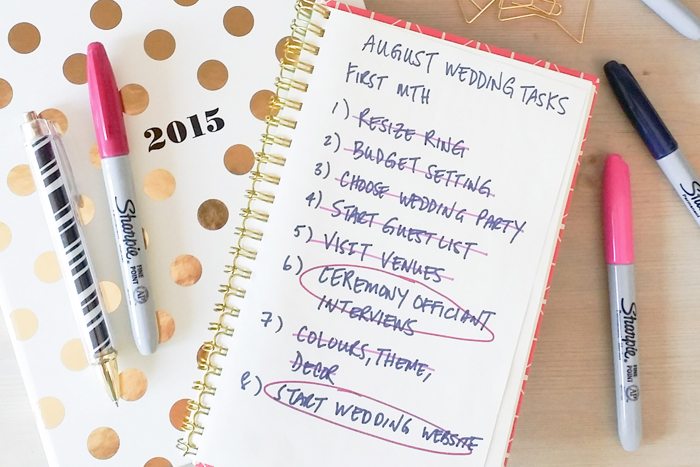 2015
AUGUST WEDDING TASKS
FIRST MTH
1) RESIZE RING
2) BUDGET SETTING
3) CHOOSE WEDDING PARTY
4) START GUEST LIST
5) VISIT VENUES
6) CEREMONY OFFICIANT
INTERVIEWS
7) COLOURS, THEME,
DECOR
8) START WEDDING WEBSITE
Sharpie
FINE
POINT
AP
Sharpie
FINE
POINT
AP
Sharpie